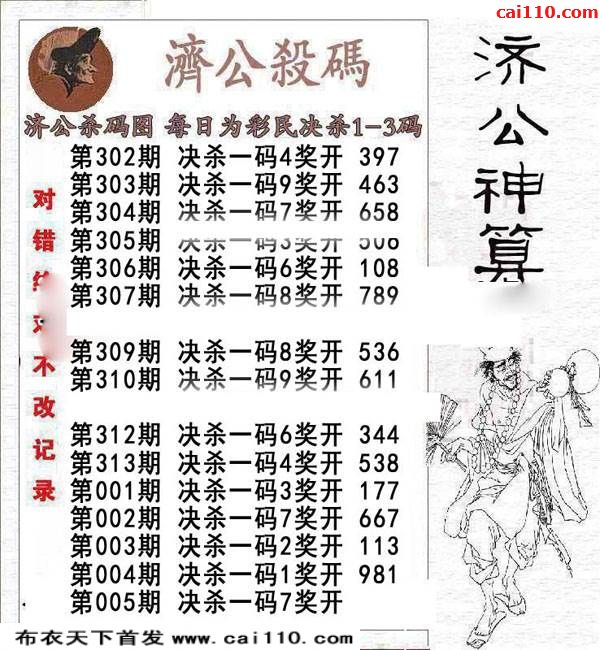 cai110.com
濟公殺碼
济公杀码图 每日为彩民决杀1-3码
第302期 决杀一码4奖开 397
第303期 决杀一码9奖开 463
第304期 决杀一码7奖开 658
第305期 决杀一码3奖开 506
第306期 决杀一码6奖开 108
第307期 决杀一码8奖开 789
第309期 决杀一码8奖开 536
第310期 决杀一码9奖开 611
第312期 决杀一码6奖开 344
第313期 决杀一码4奖开 538
第001期 决杀一码3奖开 177
第002期 决杀一码7奖开 667
第003期 决杀一码2奖开 113
第004期 决杀一码1奖开 981
第005期 决杀一码7奖开
对错 不改记录
济公神算
布衣天下首发 www.cai110.com